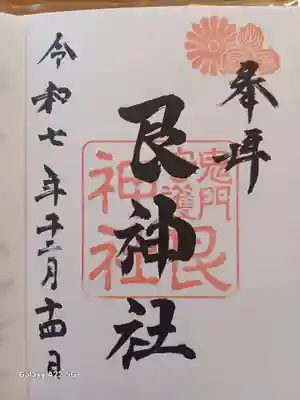 奉拝
鬼門
守護
艮
神社
艮神社
令和七年十二月十四日
Galaxy A22 5G